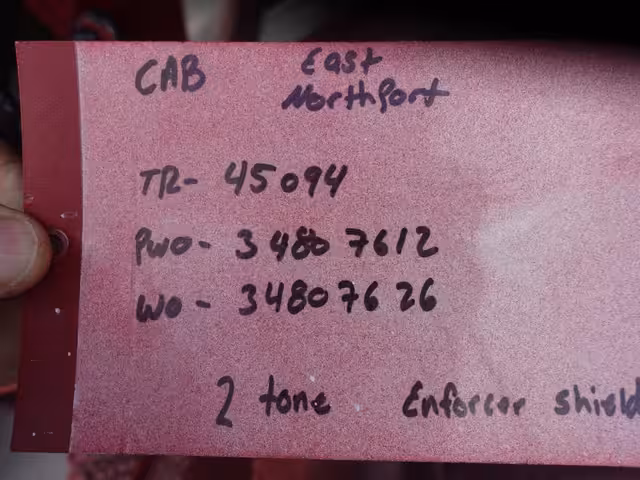 CAB East
Northport
TR- 45094
PWO- 34807612
WO- 34807626
2 tone Enforcer shield